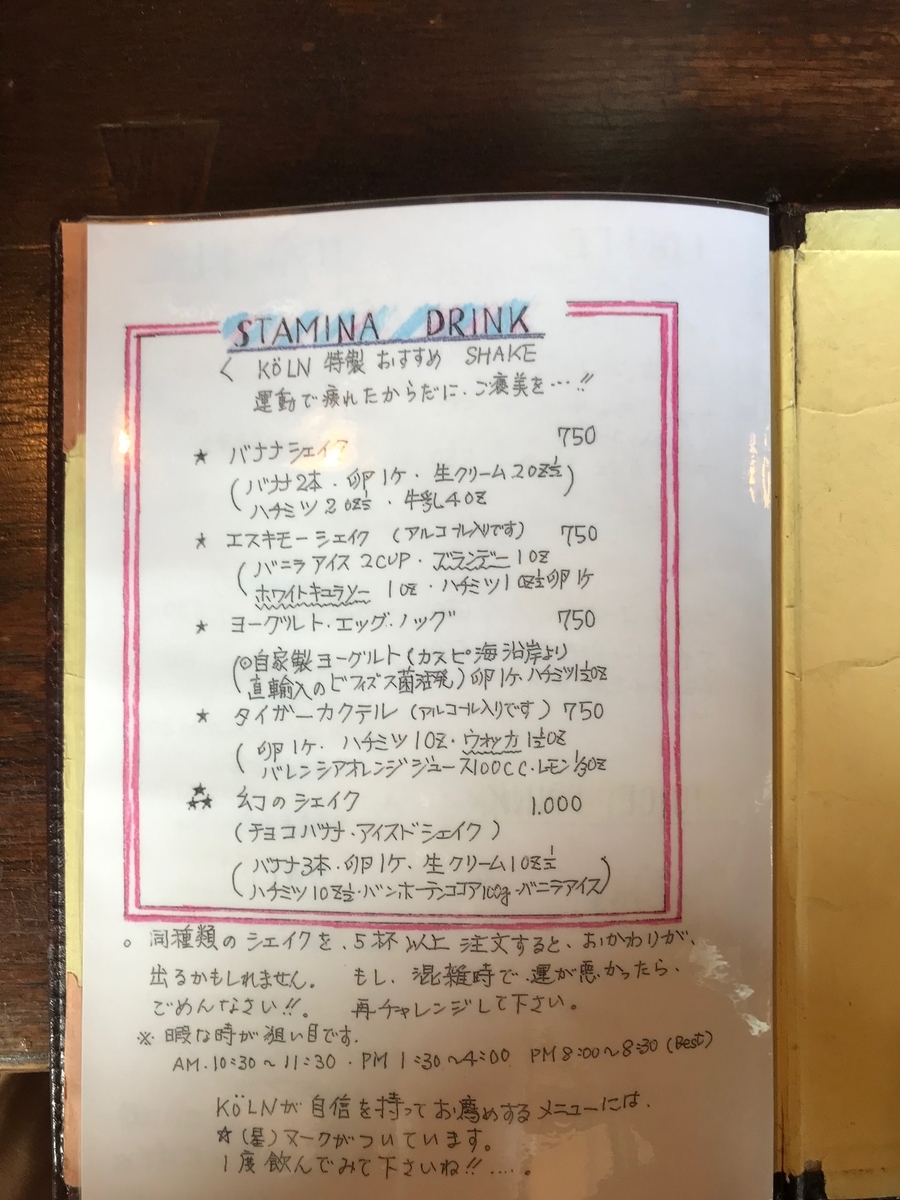 STAMINA DRINK
< KÖLN 特製 おすすめ SHAKE
運動で疲れたからだに、ご褒美を…!!
★ バナナシェイク 750
(バナナ2本・卵1ケ・生クリーム2oz½)
ハチミツ 2oz½ ・牛乳4oz
★ エスキモーシェイク (アルコール入りです) 750
(バニラアイス 2CUP・ブランデー 1oz
ホワイトキュラソー 1oz・ハチミツ1oz½卵1ケ
★ ヨーグルト・エッグ・ノッグ 750
(◎自家製ヨーグルト(カスピ海沿岸より
直輸入のビフィズス菌活発) 卵1ケ、ハチミツ1½oz
★ タイガーカクテル (アルコール入りです) 750
(卵1ケ・ハチミツ1oz・ウオッカ1½oz
バレンシアオレンジジュース100CC・レモン⅓oz
★★★ 幻のシェイク 1.000
(チョコバナナ・アイスドシェイク)
(バナナ3本・卵1ケ、生クリーム1oz½)
ハチミツ1oz½・バンホーテンココア100g・バニラアイス
○ 同種類のシェイクを、5杯以上注文すると、おかわりが、
出るかもしれません。 もし、混雑時で、運が悪かったら、
ごめんなさい!!。 再チャレンジして下さい。
※ 暇な時が狙い目です。
AM.10:30~11:30 . PM 1:30~4:00 PM 8:00~8:30 (Best)
KÖLNが自信を持ってお薦めするメニューには、
☆(星)マークがついています。
1度飲んでみて下さいね!!……。